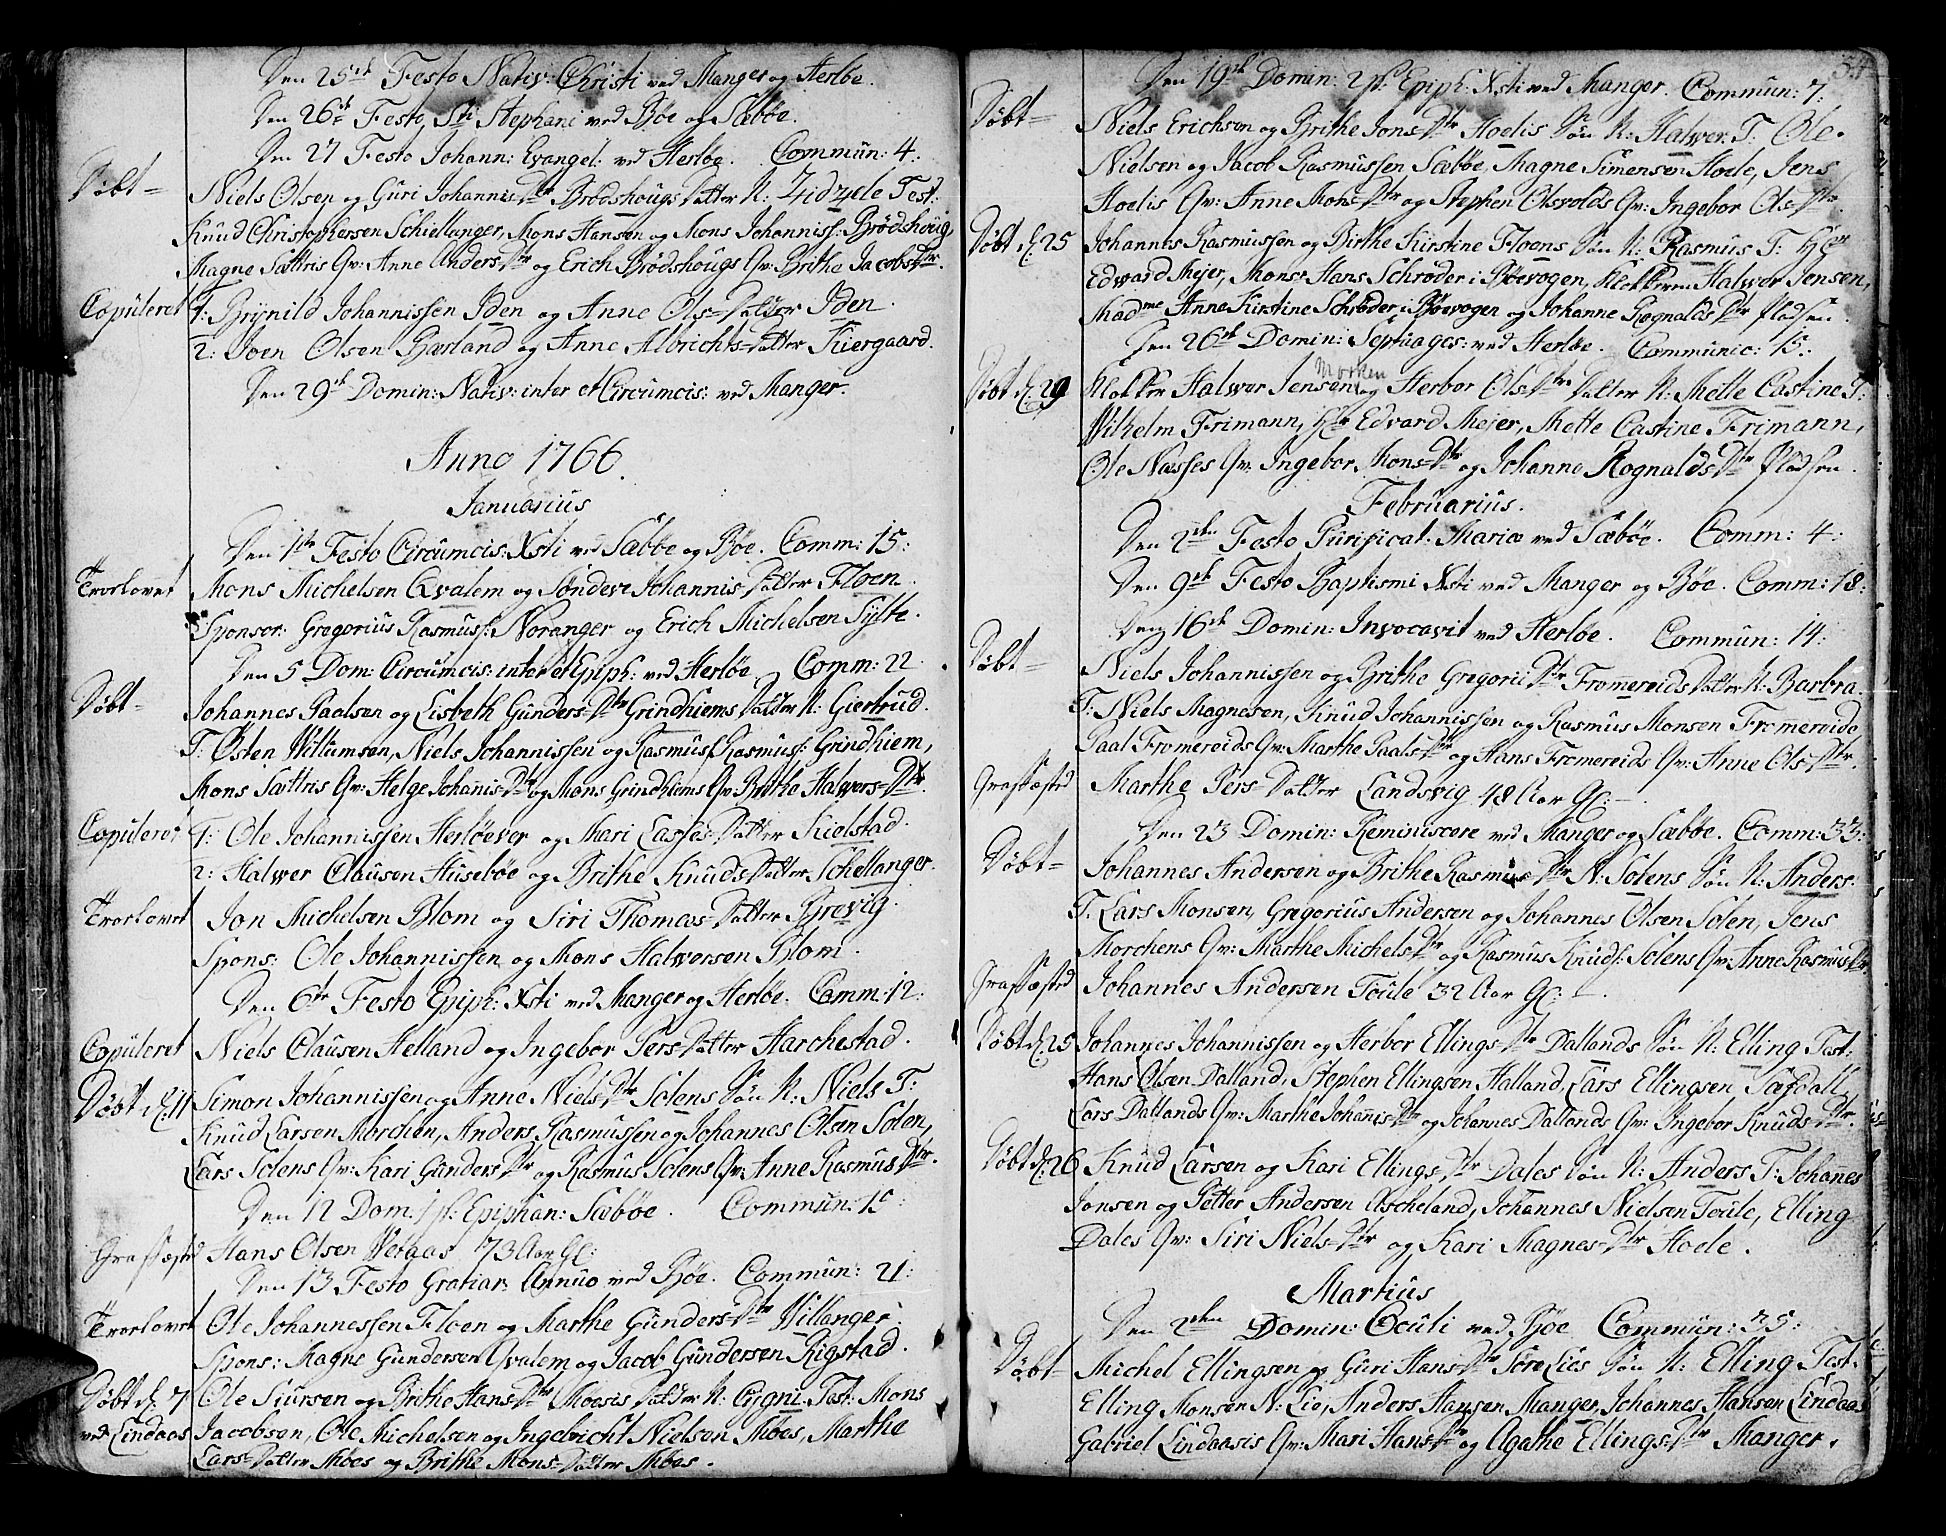 Den 25de Festo Nativ: Christi ved Manger og Herlöe.
Den 26de Festo Sti Stephani ved Böe og Sæböe.
Den 27 Festo Johann: Evangel: ved Herlöe. Commun: 4:
Döbt= Niels Olsen og Guri JohannisDtr Brödshougs Datter N: Zidzele Test:
Knud Christophersen Schiellanger, Mons Hansen og Mons Johanniss: Brödshoug,
Magne Sættris Qv: Anne AndersDtr og Erich Brödshougs Qv: Brithe JacobsDtr.
Copuleret 1: Brynild Johannissen Iden og Anne Ols=Datter Iden
2: Joen Olsen Bærland og Anne Albrichts=Datter Kiergaard.
Den 29de Domin: Nativ: inter et Circumcis: ved Manger.
Anno 1766.
Januarius
Den 1ste Festo Circumcis: Xsti ved Sæböe og Böe. Comm: 15:
Trorlovet Mons Michelsen Qvalem og Sönneve Johannis=Datter Floen.
Sponsor: Gregorius Rasmuss: Noranger og Erich Michelsen Sylte.
Den 5 Dom: Circumcis: inter et Epiph: ved Herlöe Comm: 22.
Döbt= Johannes Paelsen og Lisbeth GundersDtr Grindhiems Datter N: Giertrud.
T: Östen Willumsen, Niels Johannissen og Rasmus Rasmuss: Grindhiem,
Mons Sættris Qv: Helge JohanisDtr og Mons Grindhiems Qv: Brithe HalversDtr.
Copuleret 1: Ole Johannissen Herlöever og Mari Lasses=Datter Kielstad.
2: Halwer Clausen Huseböe og Brithe Knuds Datter Schellanger.
Trorlovet Jon Michelsen Blom og Siri Thomas=Datter Brevig.
Spons: Ole Johannissen og Mons Halwersen Blom.
Den 6te Festo Epiph: Xsti ved Manger og Herlöe. Comm: 12:
Copuleret Niels Clausen Helland og Ingebor Pers=Datter Harchestad.
Döbt d: 11 Simon Johannissen og Anne NielsDtr Solens Sön N: Niels T:
Knud Larsen Morchen, Anders Rasmussen og Johannes Olsen Solen,
Lars Solens Qv: Kari GundersDtr og Rasmus Solens Qv: Anne RasmusDtr.
Den 12 Dom: 1 p: Epiphan: Sæböe. Commun: 10:
Graffæstd Hans Olsen Vetaas 73 Aar Gl:
Den 13 Festo Gratiar: Annuo ved Böe. Commun: 21:
Trorlovet Ole Johannessen Floen og Marthe GundersDtr Villanger.
Spons: Magne Gundersen Qvalem og Jacob Gundersen Rigstad.
Döbt d: 7 Ole Siursen og Brithe HansDtr Moesis Datter N: Cygni. Test: Mons
ved Lindaas Jacobsen, Ole Michelsen og Ingebricht Nielsen Moes, Marthe
Lars=Datter Moes og Brithe Mons=Datter Moes.
54
Den 19de Domin: 2 p: Epiph: Xsti ved Manger. Commun: 7:
Döbt= Niels Erichsen og Brithe JonsDtr Hoelis Sön N: Halwer. T: Ole
Nielsen og Jacob Rasmussen Sæböe, Magne Simensen Hoele, Jens
Hoelis Qv: Anne MonsDtr og Stephen Olsvolds Qv: Ingebor OlsDtr.
Döbt d: 25 Johannes Rasmussen og Birthe Kirstine Floens Sön N: Rasmus T: Hr
Edward Mejer, Monsr Hans Schröder i Böevogen, Klokkeren Halwer Jensen,
Madme Anne Kirstine Schröder i Böevogen og Johanne RognaldsDtr Pladsen.
Den 26de Domin: Septuages: ved Herlöe. Communic: 15:
Morken
Döbt d: 29 Klokker Halwer Jensen og Herbor OlsDtr Datter N: Mette Castine T:
Vilhelm Frimann, Hr Edvard Mejer, Mette Castine Frimann,
Ole Næsses Qv: Ingebor MonsDtr og Johanne RognaldsDtr Pladsen.
Februarius.
Den 2den Festo Purificat: Mariæ ved Sæböe. Comm: 4:
Den 9de Festo Baptismi Xsti ved Manger og Böe. Comm: 18:
Den 16de Domin: Invocavit ved Herlöe. Commun: 14:
Döbt= Niels Johannissen og Brithe GregoriiDtr Fromereids Datter N: Barbra.
T: Niels Magnesen, Knud Johannissen og Rasmus Monsen Fromereide
Paal Fromereids Qv: Marthe PaalsDtr og Hans Fromereids Qv: Anne OlsDtr.
Graffæstd Marthe Pers=Datter Landsvig 48 Aar Gl:
Den 23 Domin: Reminiscere ved Manger og Sæböe. Comm: 33:
Döbt= Johannes Andersen og Brithe RasmusDtr N: Solens Sön N: Anders.
T: Lars Monsen, Gregorius Andersen og Johannes Olsen Solen, Jens
Morchens Qv: Marthe MichelsDtr og Rasmus Knuds: Solens Qv: Anne RasmusDtr
Graffæstd Johannes Andersen Toule 32 Aar Gl:
Döbt d: 25 Johannes Johannissen og Herbor EllingsDtr Dallands Sön N: Elling Test:
Hans Olsen Dalland, Stephen Ellingsen Halland, Lars Ellingsen Sæfdall
Lars Dallands Qv: Marthe JohanisDtr og Johannes Dallands Qv: Ingebor KnudsDtr.
Döbt d: 26 Knud Larsen og Kari EllingsDtr Dales Sön N: Anders T: Johannes
Jonsen og Petter Andersen Ascheland, Johannes Nielsen Toule, Elling
Dales Qv: Siri NielsDtr og Kari MagnesDtr Hoele.
Martius
Den 2den Domin: Oculi ved Böe Commun: 35:
Döbt= Michel Ellingsen og Guri HansDtr Söre Lies Sön N: Elling Test:
Elling Monsen N: Lie, Anders Hansen Manger, Johannes Hansen Lindaas
Gabriel Lindaasis Qv: Mari HansDtr og Agathe EllingsDtr Manger.